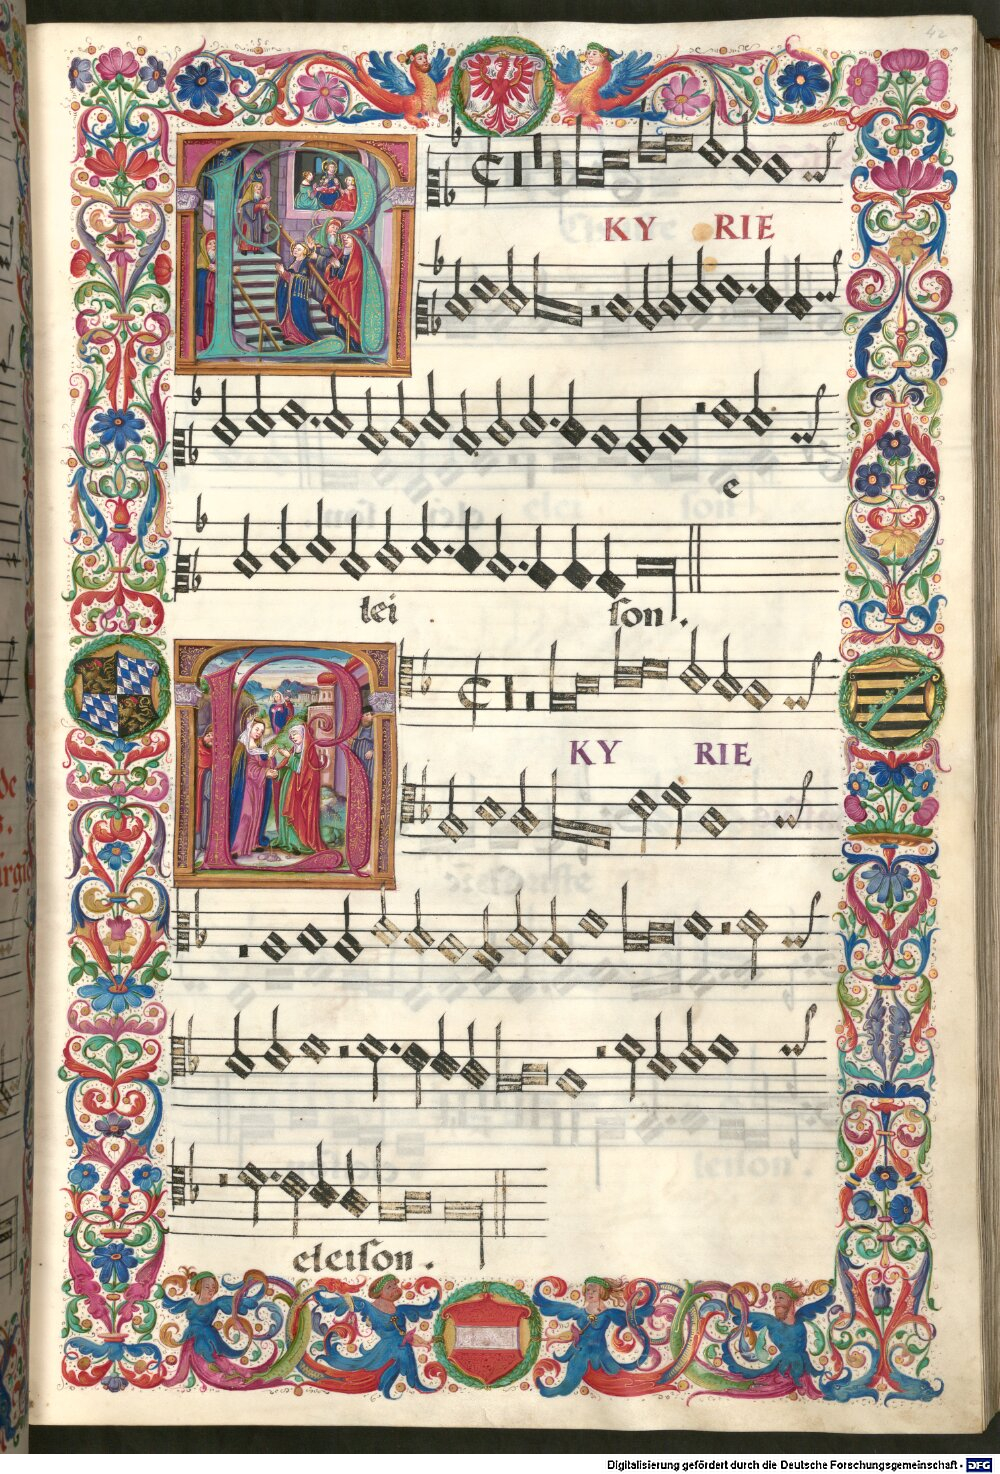 42
KY RIE
e
lei son.
KY RIE
eleison.
Digitalisierung gefördert durch die Deutsche Forschungsgemeinschaft - DFG